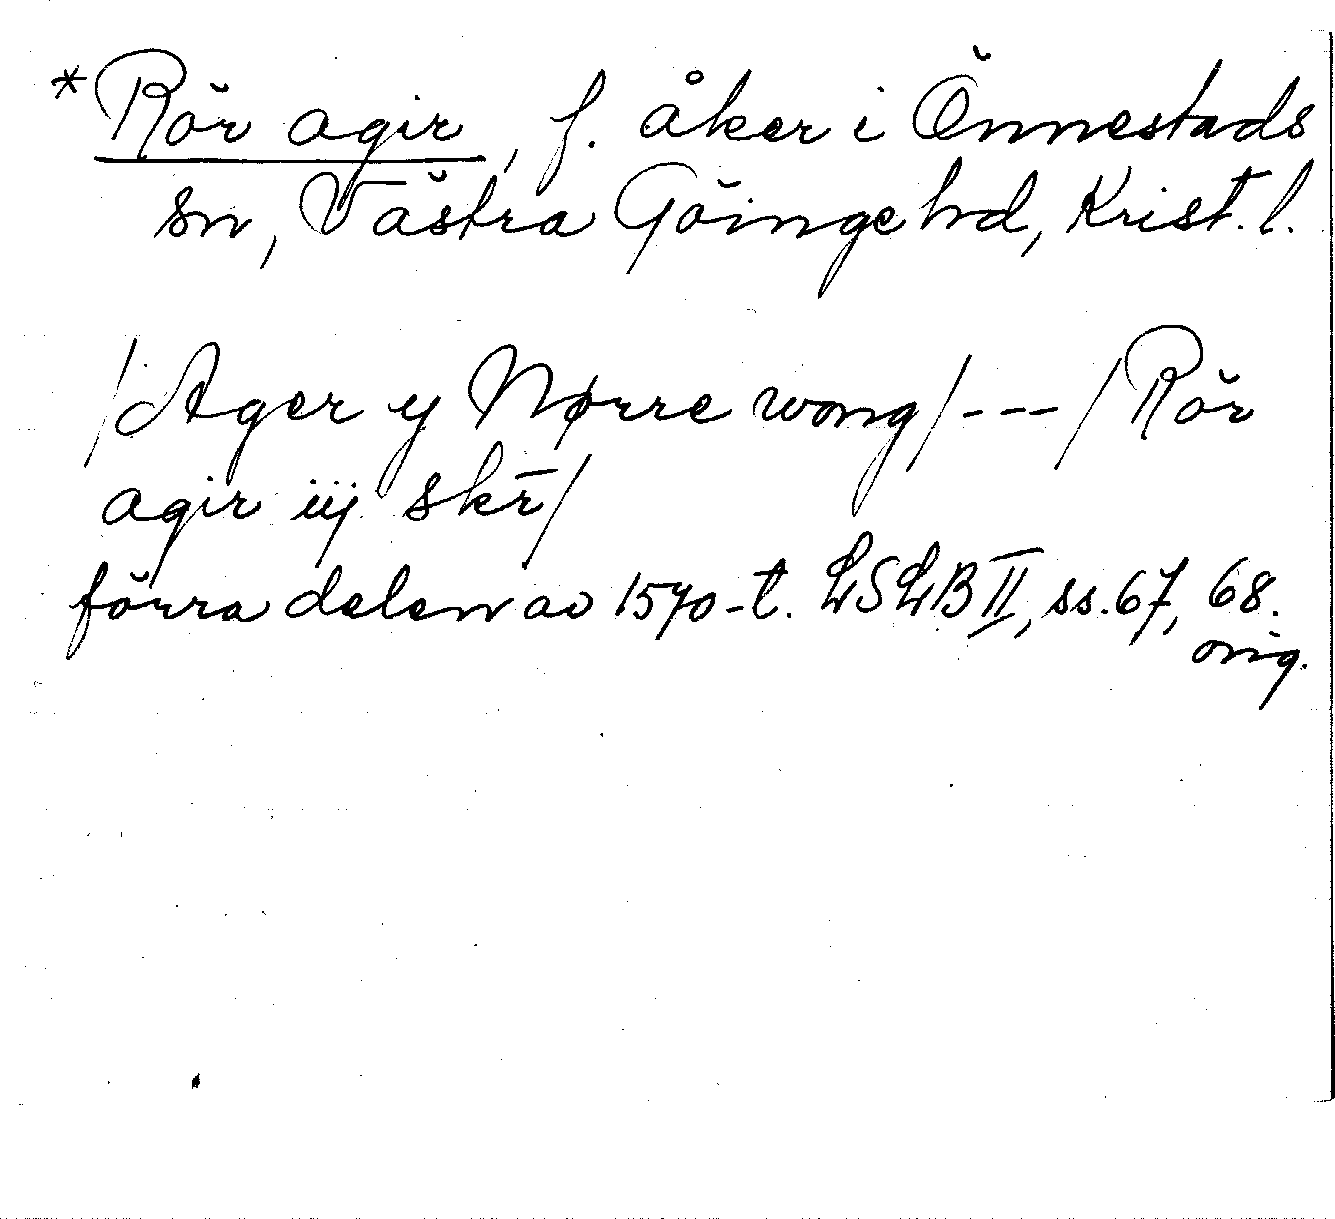 *Rör agir, f. åker i Önnestads
sn, Västra Göinge hd, Krist. l.
/Ager y Nørre wong/---/Rör
agir iij skr̄/
förra delen av 1570-t. LSLB II, ss. 67, 68.
orig.